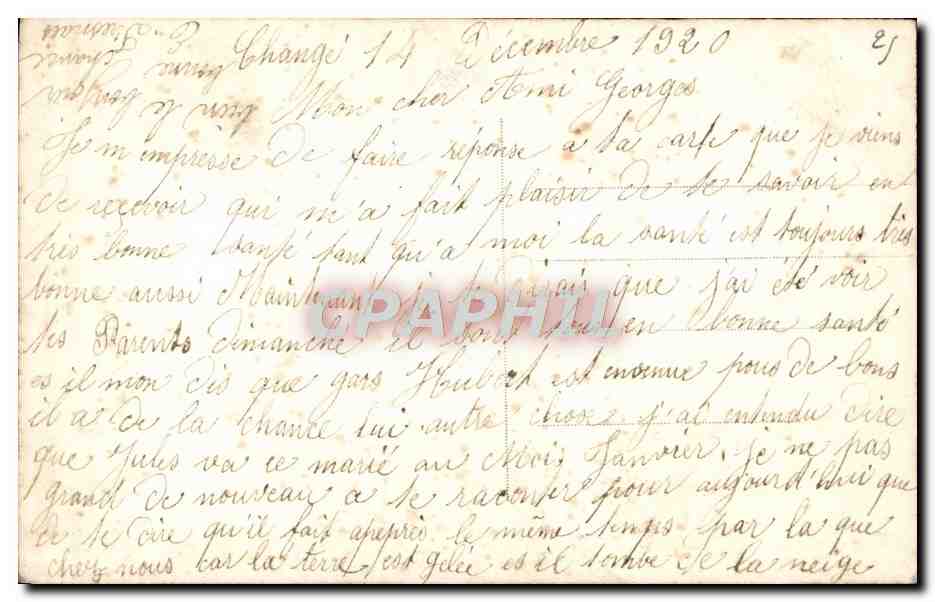 Changé 14 Décembre 1920
25
Mon cher Ami Georges
Je m'empresse de faire réponse a ta carte que je viens
de recevoir qui m'a fait plaisir de te savoir en
très bonne santé tant qu'a moi la santé est toujours très
bonne aussi Maintenant je te dirais que j'ai été voir
tes Parents dimanche il sont tous en bonne santé
es il mon dis que gars Hubert est envenue pous de bons
il a de la chance lui autre chose j'ai entendu dire
que Jules va ce marié au Mois Janvier. je ne pas
grand de nouveau a te raconter pour aujourd'hui que
de te dire qu'il fait apeprès le même temps par la que
chez nous car la terre est gelée es il tombe de la neige
CPAPHIL